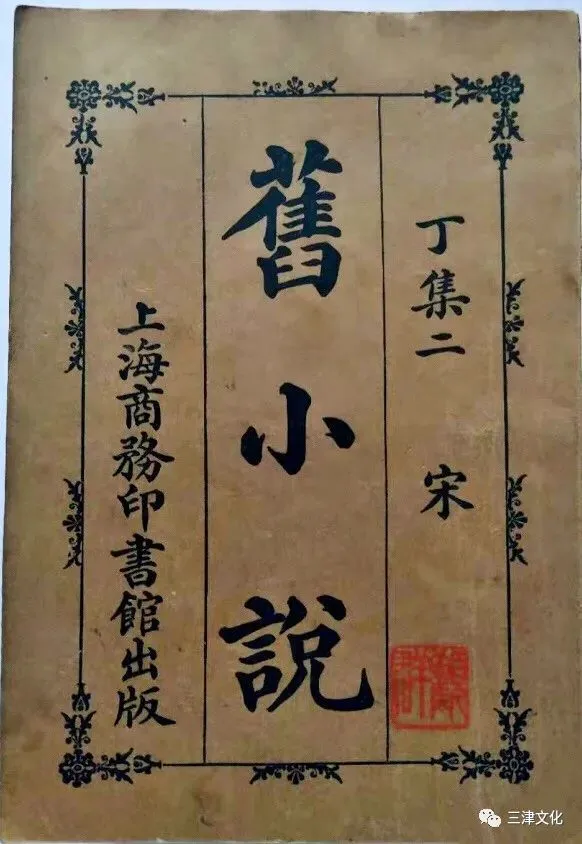 丁集二 宋
舊小說
上海商務印書館出版
三津文化